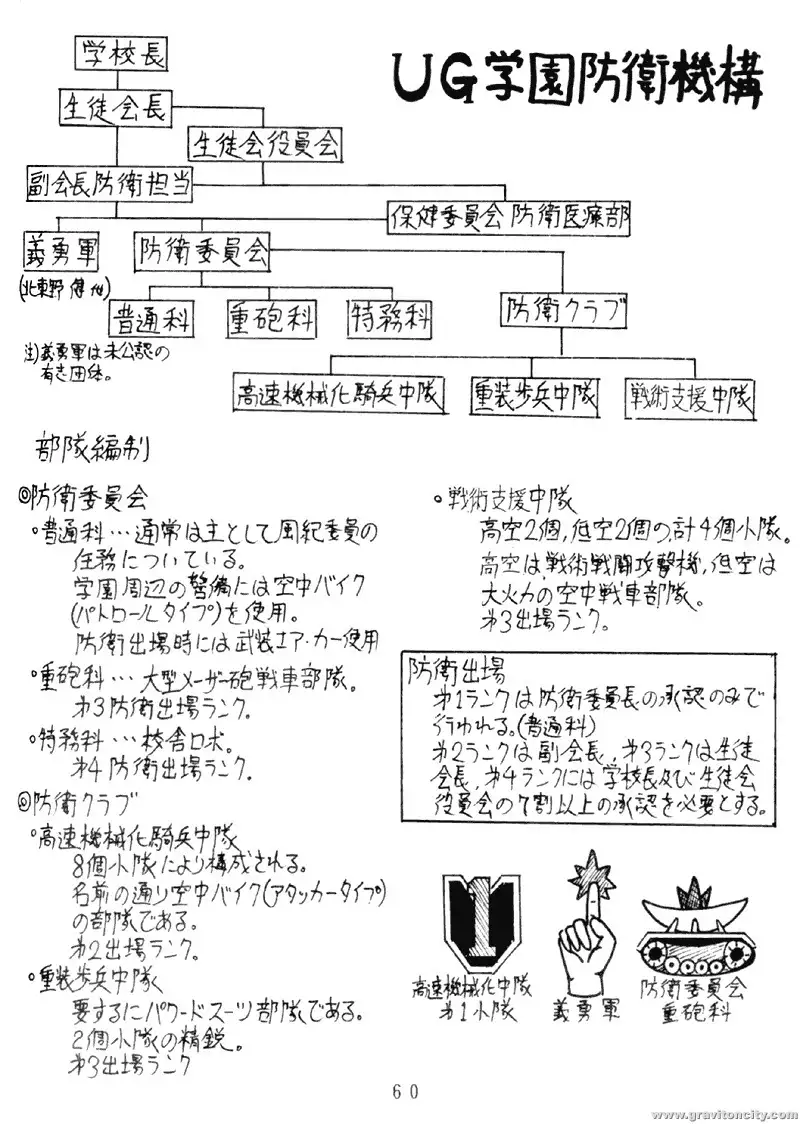 UG学園防衛機構
学校長
生徒会長
生徒会役員会
副会長防衛担当
保健委員会 防衛医療部
義勇軍
防衛委員会
(北東野 健他)
普通科
重砲科
特務科
防衛クラブ
注)義勇軍は未公認の
有志団体。
高速機械化騎兵中隊
重装歩兵中隊
戦術支援中隊
部隊編制
◎防衛委員会
・普通科…通常は主として風紀委員の
任務についている。
学園周辺の警備には空中バイク
(パトロールタイプ)を使用。
防衛出場時には武装エア・カー使用
・重砲科…大型メーザー砲戦車部隊。
第3防衛出場ランク。
・特務科…校舎ロボ。
第4防衛出場ランク。
◎防衛クラブ
・高速機械化騎兵中隊
8個小隊により構成される。
名前の通り空中バイク(アタッカータイプ)
の部隊である。
第2出場ランク。
・重装歩兵中隊
要するにパワードスーツ部隊である。
2個小隊の精鋭。
第3出場ランク
・戦術支援中隊
高空2個,低空2個の,計4個小隊。
高空は,戦術戦闘攻撃機,低空は
大火力の空中戦車部隊。
第3出場ランク。
防衛出場
第1ランクは防衛委員長の承認のみで
行われる。(普通科)
第2ランクは副会長,第3ランクは生徒
会長,第4ランクには学校長及び生徒会
役員会の7割以上の承認を必要とする。
1
高速機械化中隊
第1小隊
義勇軍
防衛委員会
重砲科
60
www.gravitoncity.com